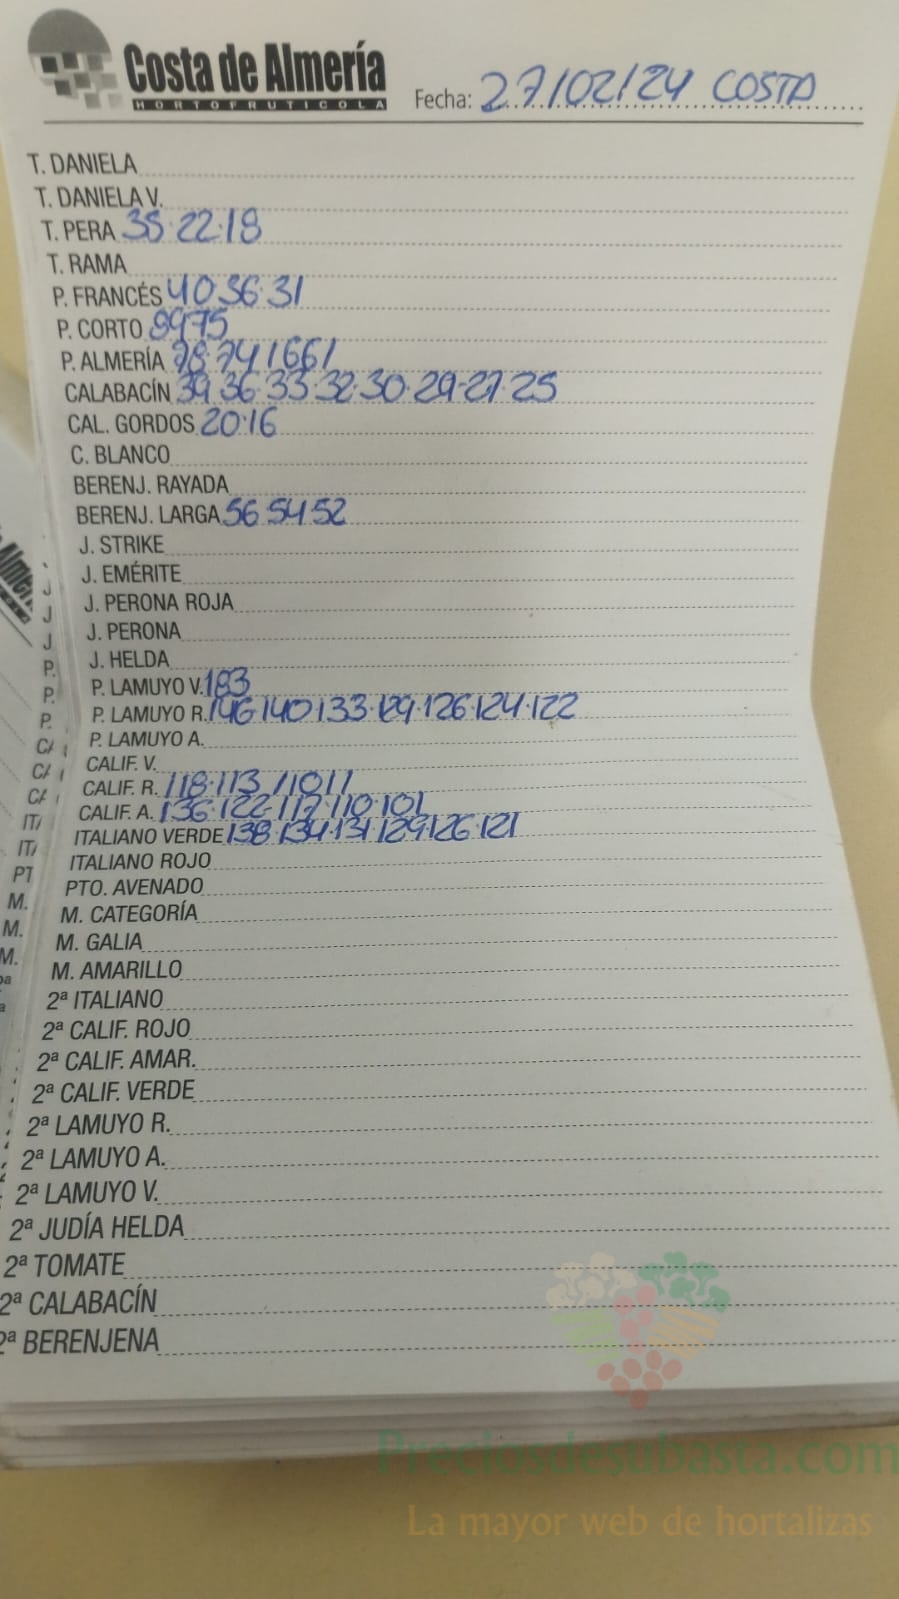 Costa de Almería
HORTOFRUTICOLA
Fecha: 27/02/24 COSTA
T. DANIELA
T. DANIELA V.
T. PERA 35·22·18
T. RAMA
P. FRANCÉS 40 36·31
P. CORTO 8975
P. ALMERÍA 78·741661
CALABACÍN 39 36·33·32·30·29·27·25
CAL. GORDOS 20·16
C. BLANCO
BERENJ. RAYADA
BERENJ. LARGA 56 54 52
J. STRIKE
J. EMÉRITE
J. PERONA ROJA
J. PERONA
J. HELDA
P. LAMUYO V. 183
P. LAMUYO R. 146·140·133·129·126·124·122
P. LAMUYO A.
CALIF. V.
CALIF. R. 118·113
CALIF. A. 136·122·117·110·101
ITALIANO VERDE 138·134·131·129·126·121
ITALIANO ROJO
PTO. AVENADO
M. CATEGORÍA
M. GALIA
M. AMARILLO
2ª ITALIANO
2ª CALIF. ROJO
2ª CALIF. AMAR.
2ª CALIF. VERDE
2ª LAMUYO R.
2ª LAMUYO A.
2ª LAMUYO V.
2ª JUDÍA HELDA
2ª TOMATE
2ª CALABACÍN
2ª BERENJENA
Preciosdesubasta.com
La mayor web de hortalizas